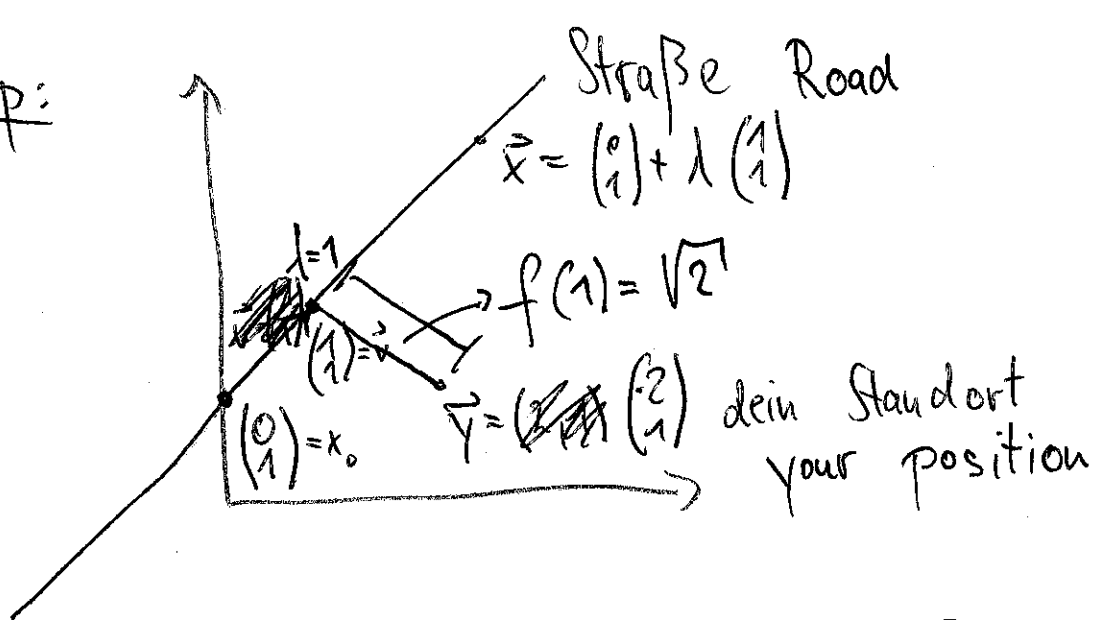 p:
Straße Road
x⃗ = (0 1) + λ (1 1)
λ=1
f(1) = √2
(1 1) = v⃗
y⃗ = (2 1) dein Standort
your position
(0 1) = x₀